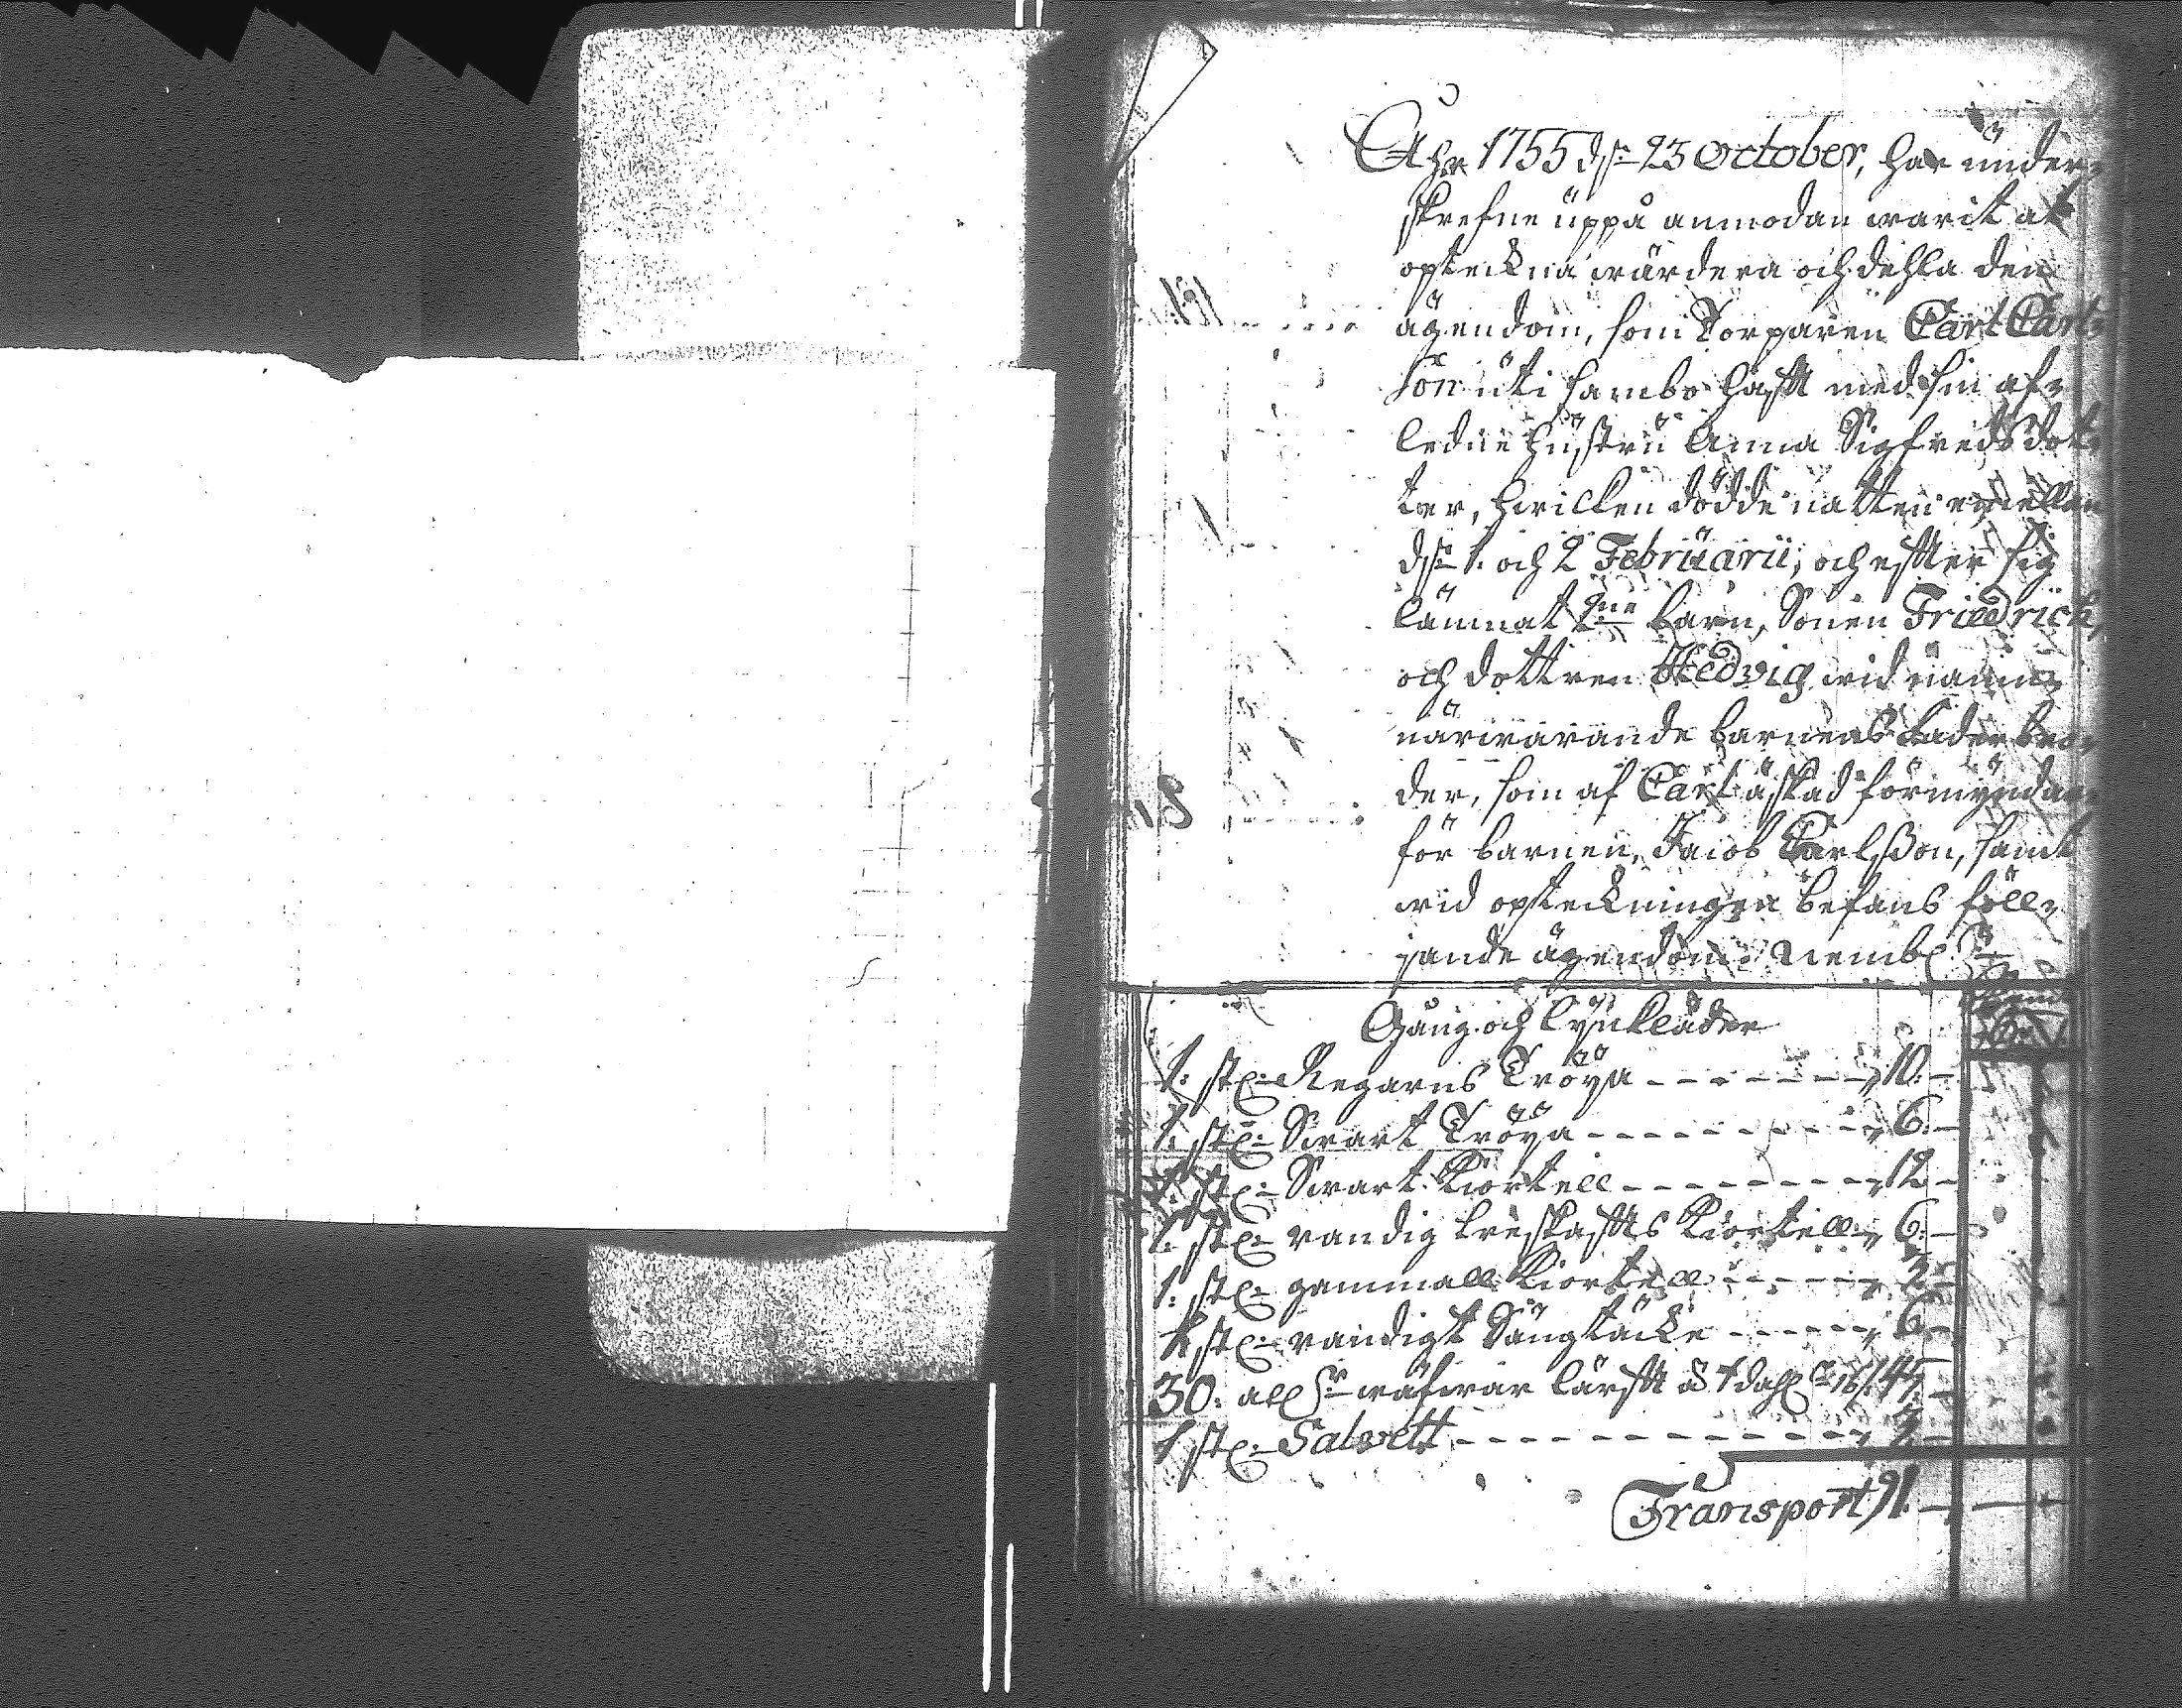 Åhr 1755 dn 23 October, har under-
skrefne uppå anmodan warit at
opteckna wärdera och dehla den
ägendom, som Torparen Carl Carl-
son uti sambo hafft med sin af-
ledne hustru Anna Sigfredsdot-
ter, hwilken dödde natten emellan
dn 1. och 2 Februarii, och effter sig
lämnat 2ne barn, Sonen Friedrich,
och dottren Hedvig wid namn,
närwarande barnens
der, som af Carl åskad förmyndare
för barnen, Jacob Carlsson, samt
wid opteckningen befans föll-
jande ägendom: Nembl:
Gång och Lynkläder
1: st: Regarns Tröya - - - - - - - 10: -
1: st: Swart Tröya - - - - - - - - 6: -
1: st: Swart Kiortell - - - - - - - 12 -
1: st: randig Kiortell - 6: -
1: st: gammall Kiortell - - - - - 
1 st: randigt Sängtäcke - - - - - 6 -
30: all: lärfft å 1 dahl 16/ 45: -
1 st: Salvett - - - - - - - - - - - -
Transport 91. -